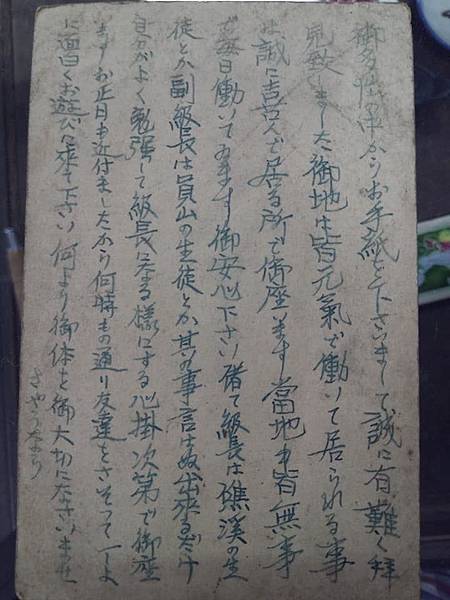 御多忙の中からお手紙を下さいまして誠に有難く拝
見致しました御地は皆元氣で働いて居られる事
は誠に喜んで居る所で御座います當地も皆無事
で毎日働いてゐます御安心下さい偖て級長は礁溪の生
徒とか副級長は員山の生徒とか其の事言はぬ出来るだけ
自分がよく勉強して級長になる様にする心掛次第で御座
ますお正月も近付ましたから何時もの通り友達をさそって一しよ
に面白くお遊びに来て下さい何より御体を御大切になさいませ
さやうなら